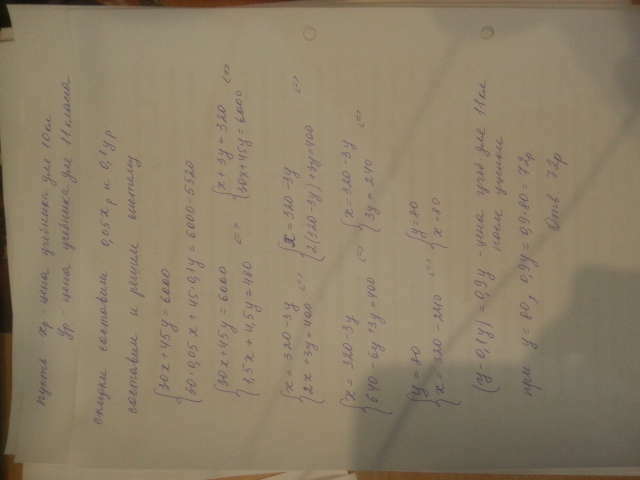 пусть xр - цена учебника для 10кл
yр - цена учебника для 11 класса
скидки составили 0,05xр и 0,1yр
составим и решим систему
{30x+45y=6000
{30·0,05x+45·0,1y=6000-5520
{30x+45y=6000 {x+3y=320 <=>
{1,5x+4,5y=480 <=> {30x+45y=6000
{x=320-3y <=> {x=320-3y
{2x+3y=400 {2(320-3y)+3y=400 <=>
{x=320-3y <=> {x=320-3y <=>
{640-6y+3y=400 {3y=240
{y=80 <=> {y=80
{x=320-240 {x=80
(y-0,1y)=0,9y - цена для 11кл
после уценки
при y=80, 0,9y=0,9·80=72р
Отв 72р